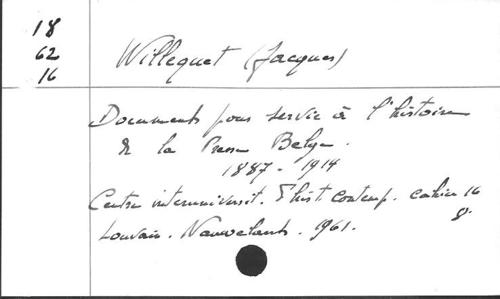 18
62
16
Willequet (Jacques)
Documents pour servir à l'histoire
de la Presse Belge.
1887-1914
Centre interuniversit. d'hist contemp. cahier 16
Louvain. Nauwelaerts. 1961. 8°